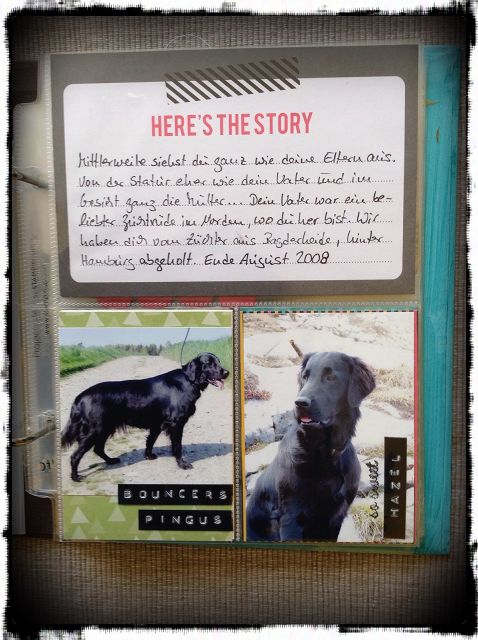 HERE'S THE STORY
Mittlerweile siehst du ganz wie deine Eltern aus.
Von der Statur eher wie dein Vater und im
Gesicht ganz die Mutter... Dein Vater war ein be-
liebter Zuchtrüde im Norden, wo du her bist. Wir
haben dich vom Züchter aus , hinter
Hamburg abgeholt. Ende August 2008
BOUNCERS
PINGUS
so sweet
HAZEL